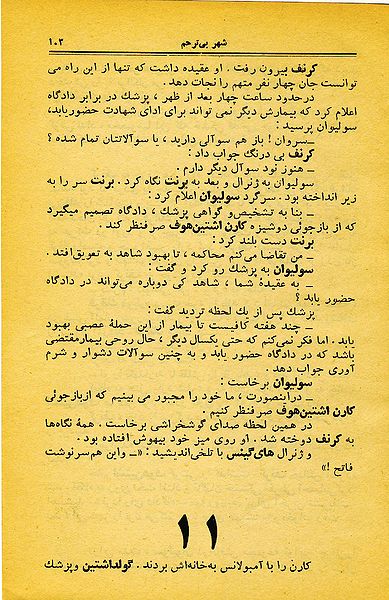 ۱۰۲ شهر بی‌ترحم
کرنف بیرون رفت . او عقیده داشت که تنها از این راه می
توانست جان چهار نفر متهم را نجات دهد.
درحدود ساعت چهار بعد از ظهر ، پزشك در برابر دادگاه
اعلام کرد که بیمارش دیگر نمی تواند برای ادای شهادت حضوریابد،
سولیوان پرسید :
ـ سروان ! باز هم سوآلی دارید ، یا سوآلاتتان تمام شده ؟
کرنف بی درنگ جواب داد :
ـ هنوز نود سوآل دیگر دارم .
سولیوان به ژنرال و بعد به برنت نگاه کرد . برنت سر را به
زیر انداخته بود . سرگرد سولیوان اعلام کرد :
ـ بنا به تشخیص‌و گواهی پزشك ، دادگاه تصمیم میگیرد
که از بازجوئی دوشیزه کارن اشتین‌هوف صرفنظر کند .
برنت دست بلند کرد :
ـ من تقاضا می‌کنم محاکمه ، تا بهبود شاهد به تعویق‌افتد .
سولیوان به پزشك رو کرد و گفت :
ـ به عقیدهٔ شما ، شاهد کی دوباره می‌تواند در دادگاه
حضور یابد ؟
پزشك پس از یك لحظه تردید گفت :
ـ چند هفته کافیست تا بیمار از این حملهٔ عصبی بهبود
یابد . اما فکر نمی‌کنم که حتی یکسال دیگر ، حال روحی بیمارمقتضی
باشد که در دادگاه حضور یابد و به چنین سوآلات دشوار و شرم
آوری جواب دهد .
سولیوان برخاست :
ـ دراینصورت ، ما خود را مجبور می بینیم که ازبازجوئی
کارن اشتین‌هوف صرفنظر کنیم .
در همین لحظه صدای گوشخراشی برخاست . همهٔ نگاه‌ها
به کرنف دوخته شد . او روی میز خود بیهوش افتاده بود .
و ژنرال های‌گینس با تلخی‌اندیشید : «ـ واین هم‌سرنوشت
فاتح !»
۱۱
کارن را با آمبولانس به‌خانه‌اش بردند . گولداشتین وپزشك